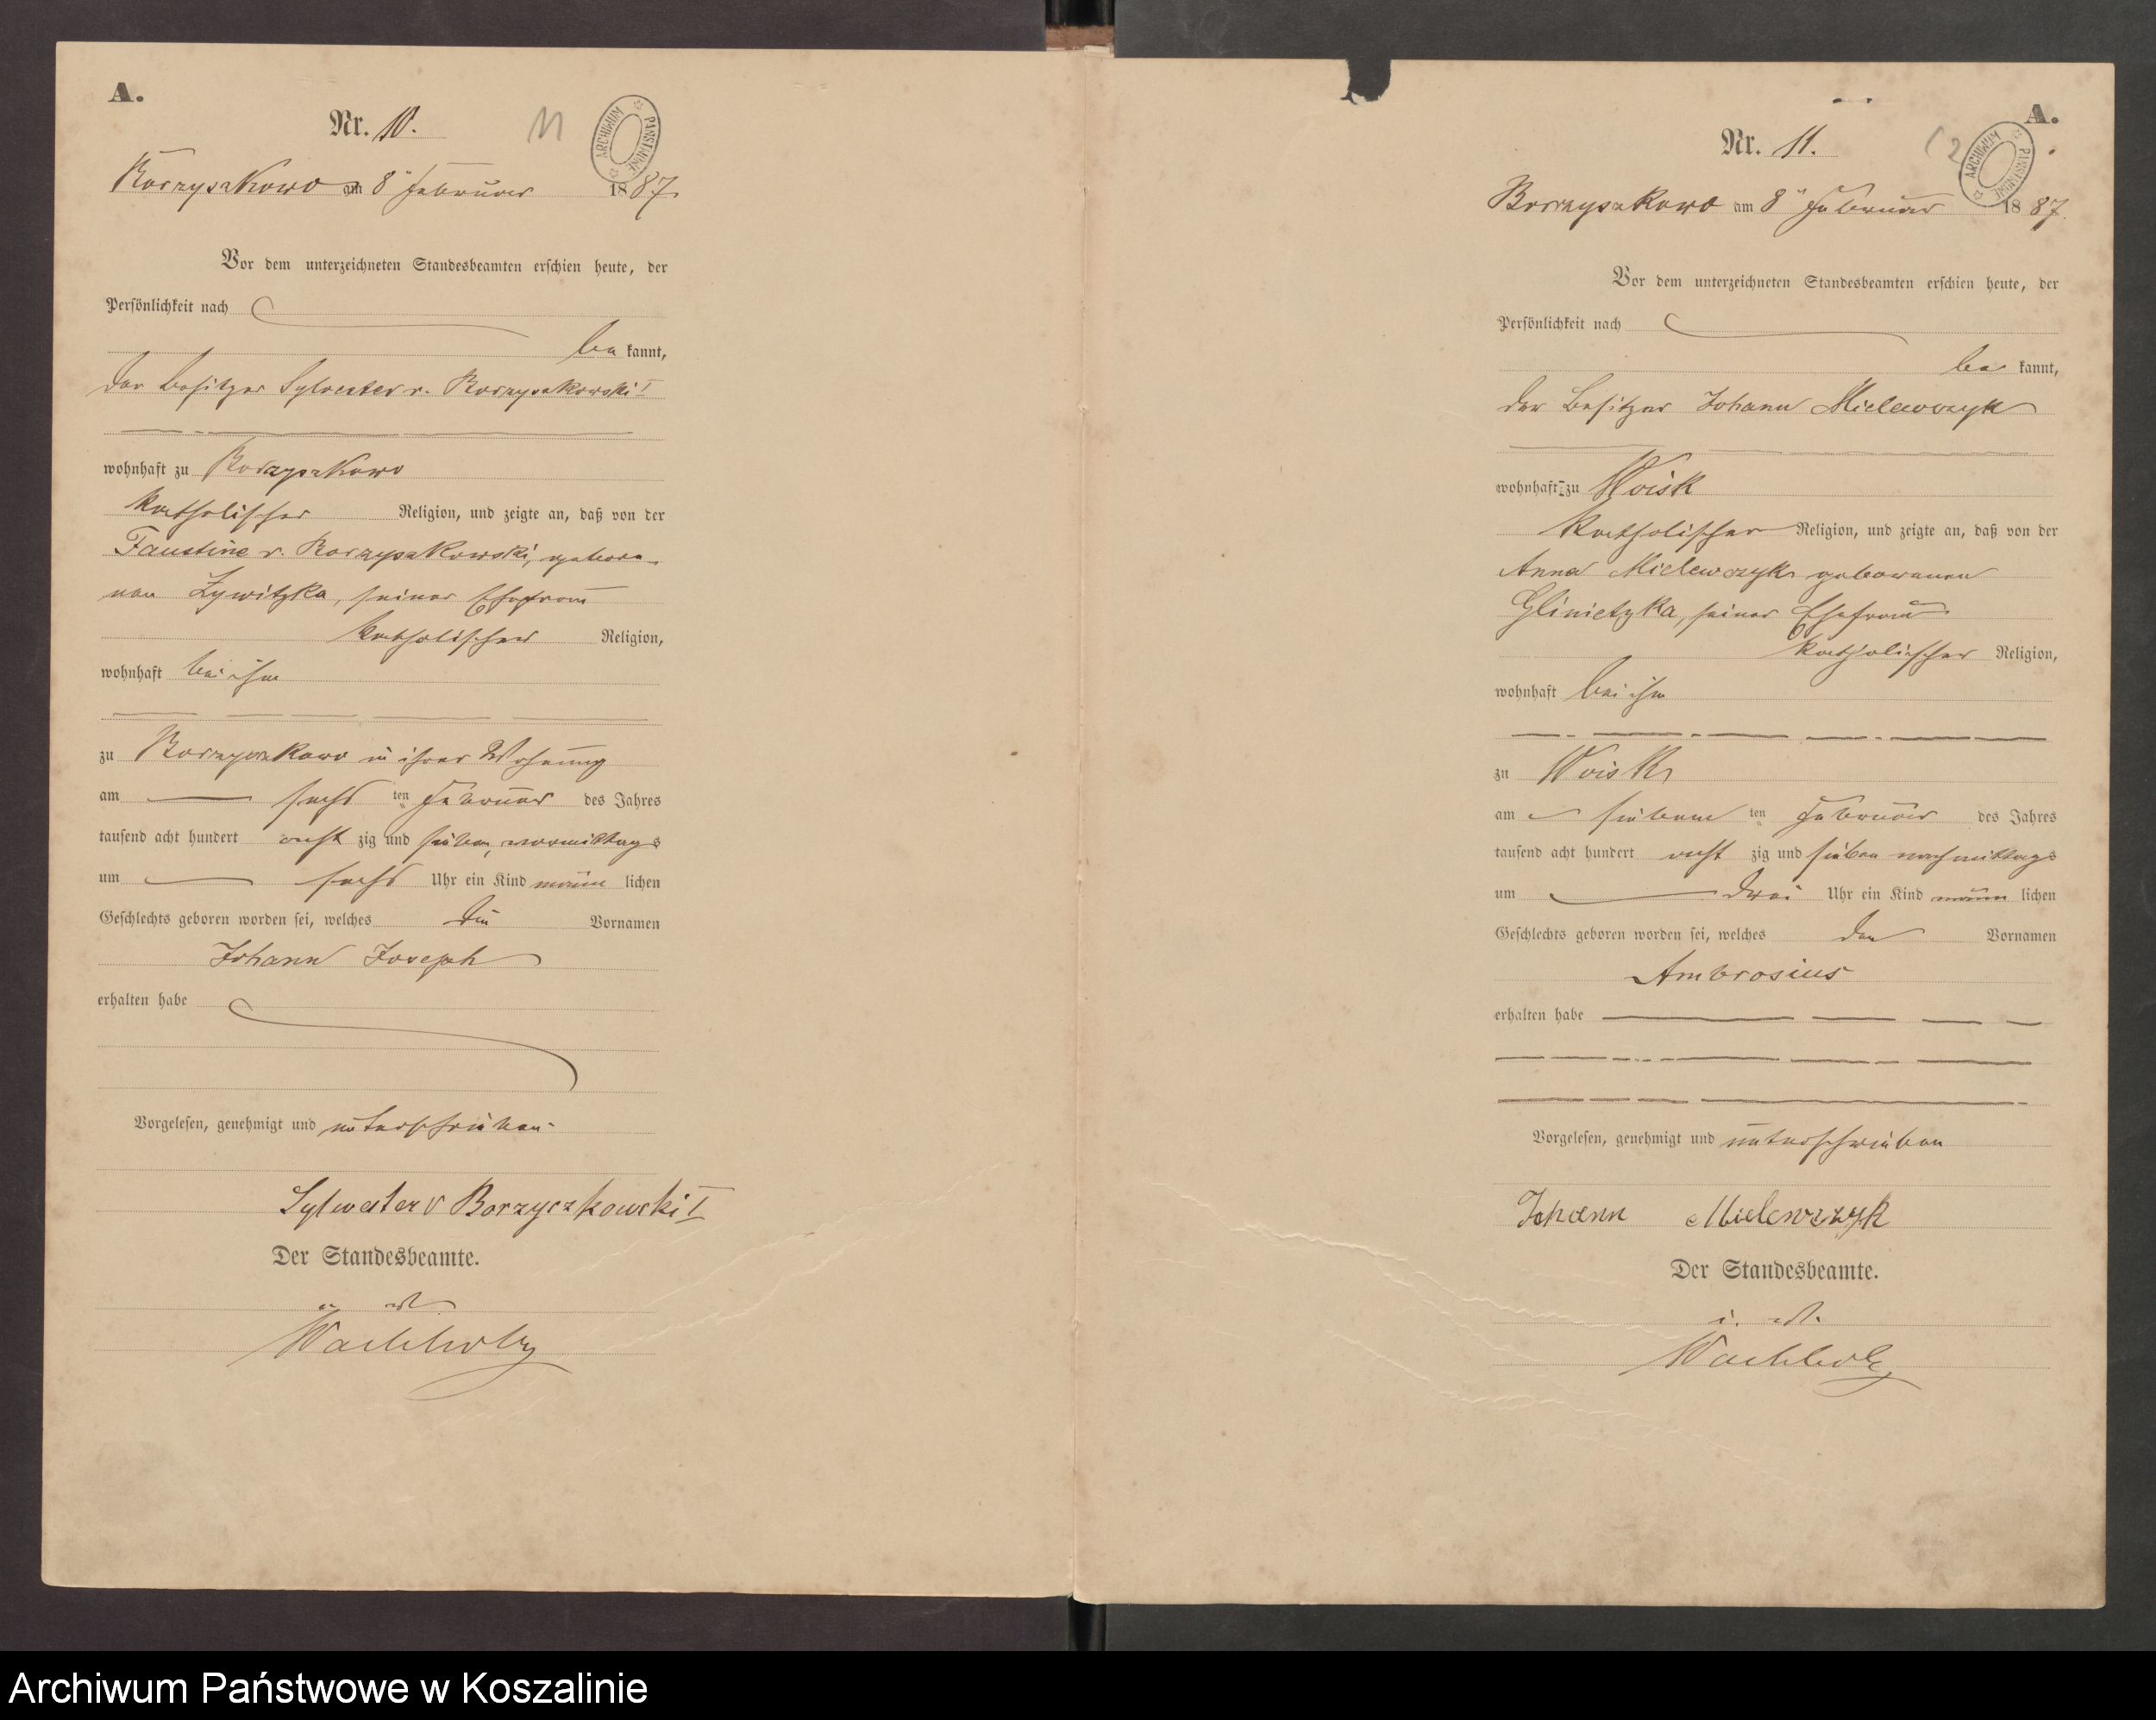 A.
Nr. 10.
11
ARCHIWUM PAŃSTWOWE
Borzyszkowo am 8ten Februar 1887
Vor dem unterzeichneten Standesbeamten erschien heute, der
Persönlichkeit nach
be kannt,
der Besitzer Sylvester v. Borzyszkowski I
wohnhaft zu Borzyszkowo
katholischer Religion, und zeigte an, daß von der
Faustine v. Borzyszkowski, gebore-
nen Zywitzka, seiner Ehefrau
katholischer Religion,
wohnhaft bei ihm
zu Borzyszkowo in ihrer Wohnung
am sechs ten Februar des Jahres
tausend acht hundert acht zig und sieben, vormittags
um sechs Uhr ein Kind männ lichen
Geschlechts geboren worden sei, welches die Vornamen
Johann Joseph
erhalten habe
Vorgelesen, genehmigt und unterschrieben
Sylwester v Borzyszkowski I
Der Standesbeamte.
i. V.
Wachholz
A.
Nr. 11.
12
ARCHIWUM PAŃSTWOWE
Borzyszkowo am 8ten Februar 1887.
Vor dem unterzeichneten Standesbeamten erschien heute, der
Persönlichkeit nach
be kannt,
der Besitzer Johann Mielewczyk
wohnhaft zu Woisk
katholischer Religion, und zeigte an, daß von der
Anna Mielewczyk geborenen
Glinietzka, seiner Ehefrau
katholischer Religion,
wohnhaft bei ihm
zu Woisk
am sieben ten Februar des Jahres
tausend acht hundert acht zig und sieben nachmittags
um drei Uhr ein Kind männ lichen
Geschlechts geboren worden sei, welches den Vornamen
Ambrosius
erhalten habe
Vorgelesen, genehmigt und unterschrieben
Johann Mielewczyk
Der Standesbeamte.
i. V.
Wachholz
Archiwum Państwowe w Koszalinie